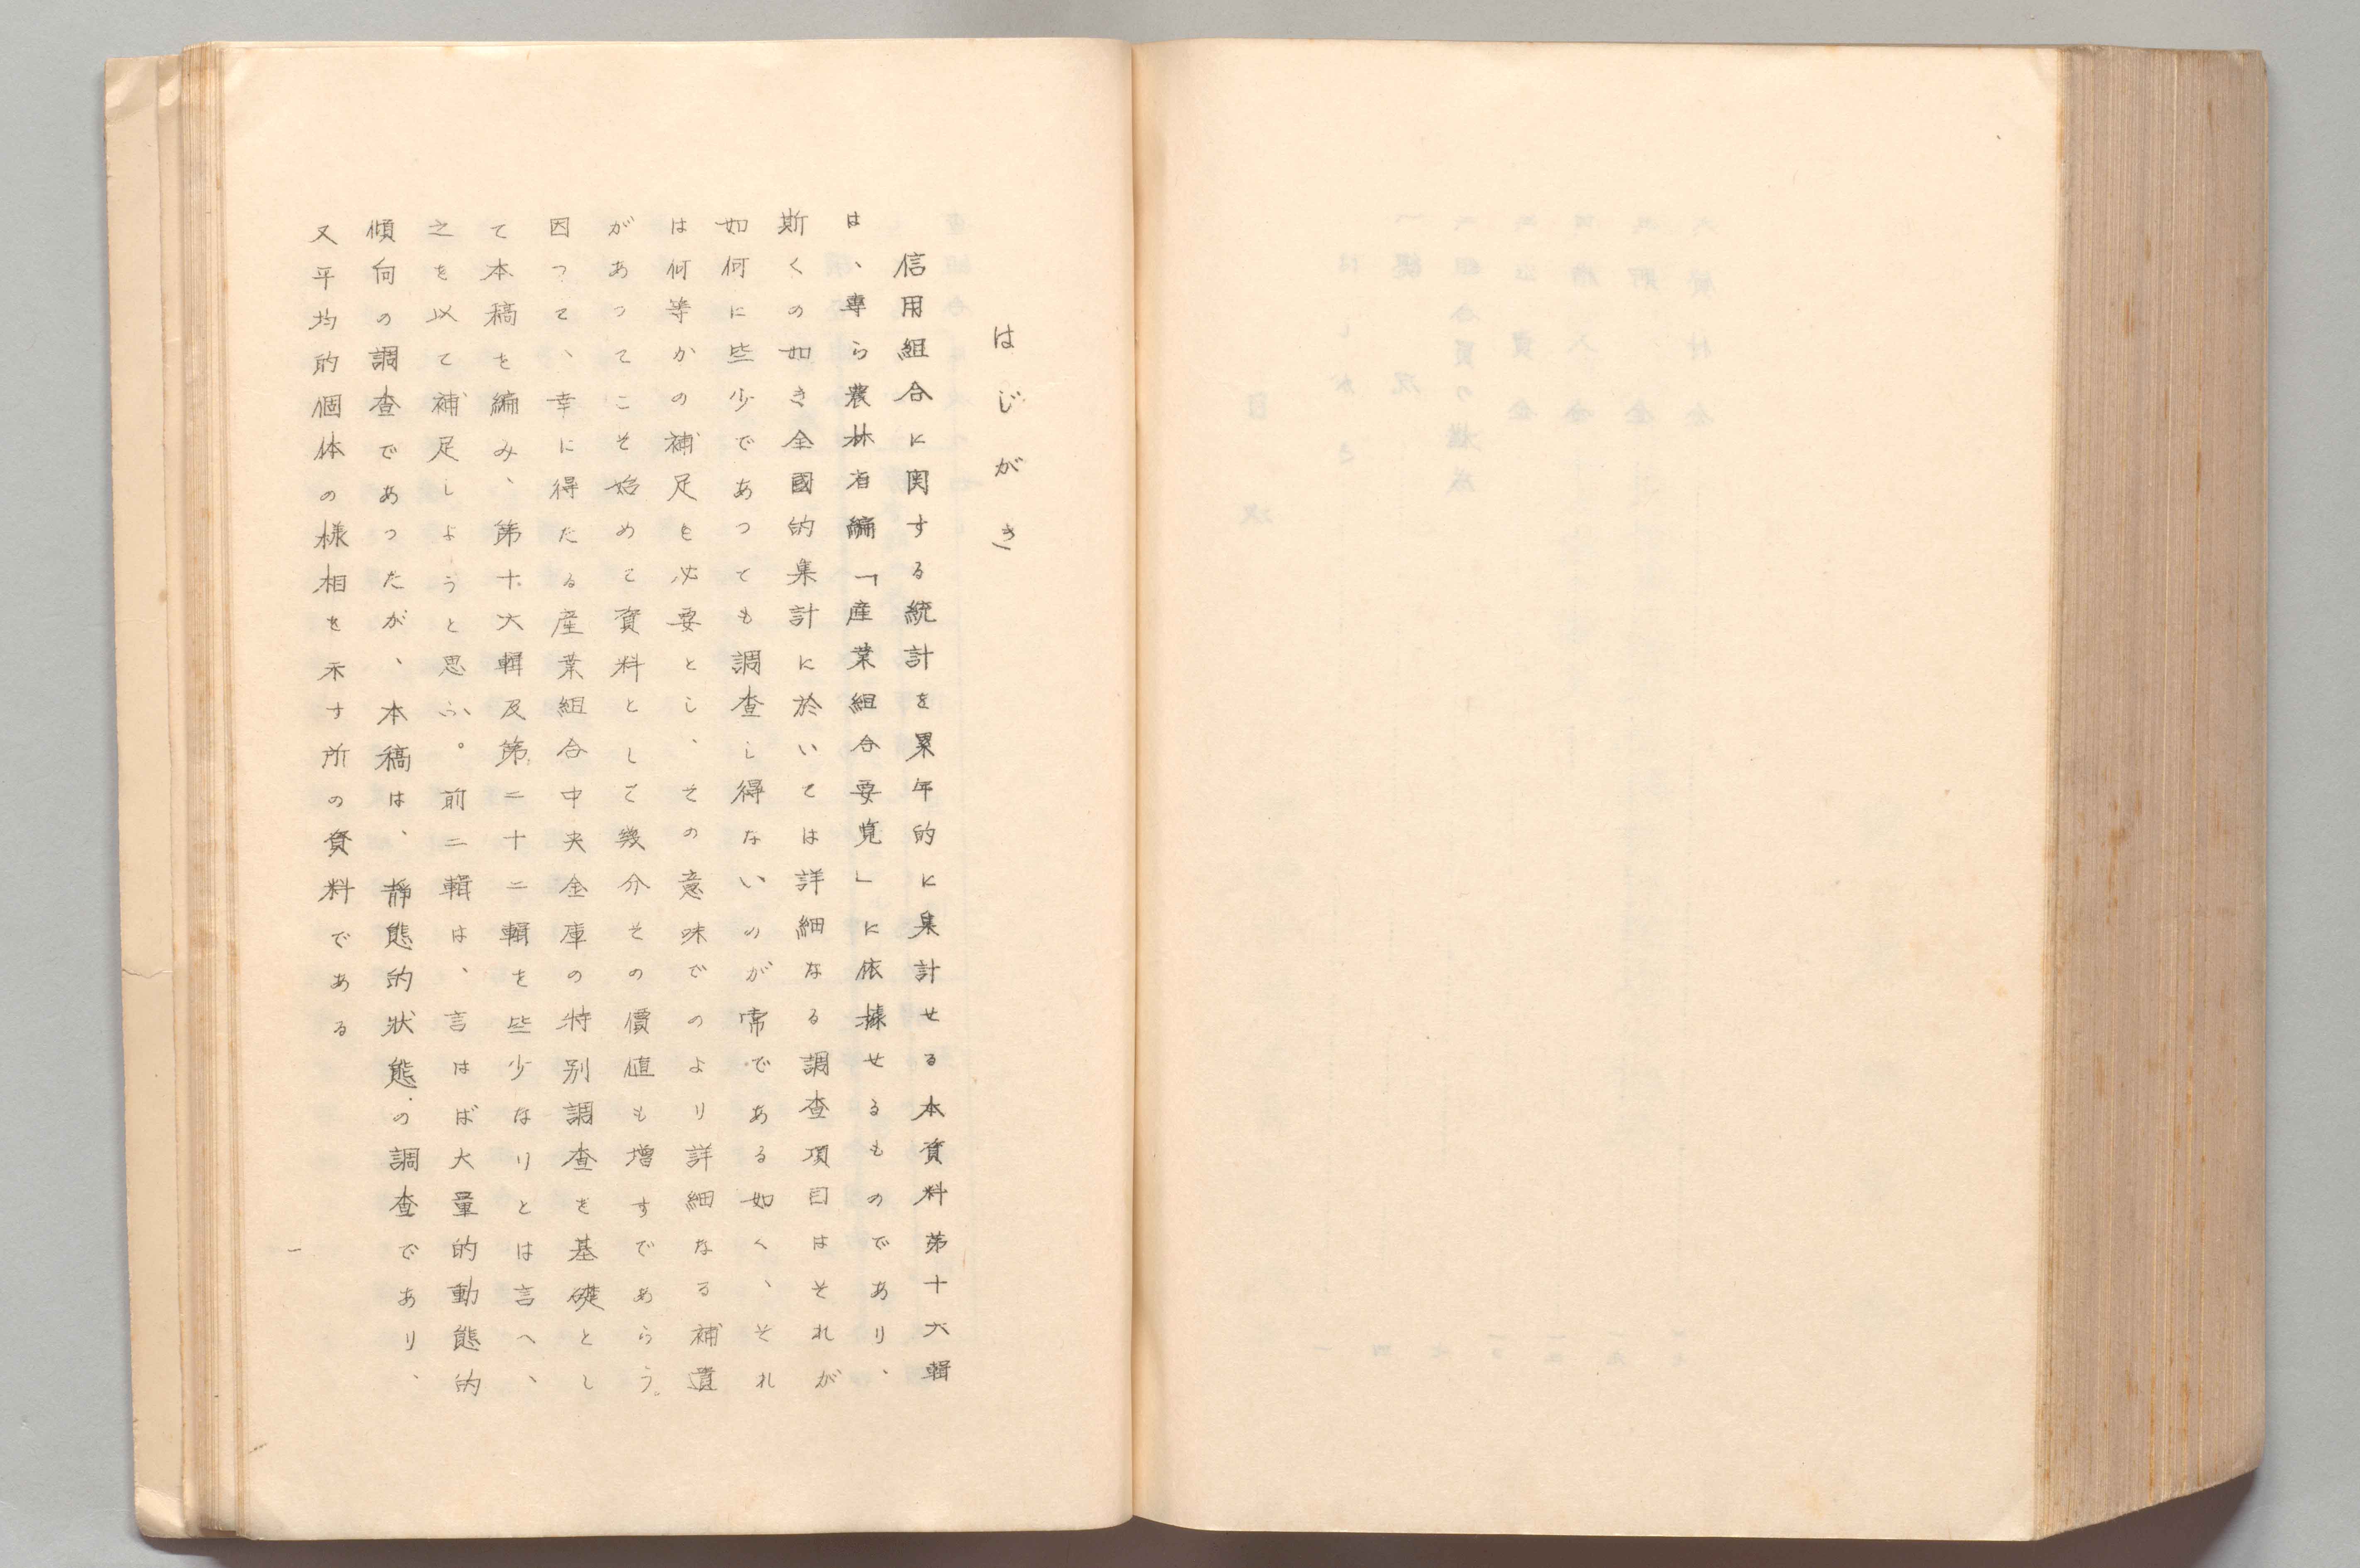 はじがき
信用組合に関する統計を累年的に集計せる本資料第十六輯
は、専ら農林省編「産業組合要覧」に依據せるものであり、
斯くの如き全國的集計に於いては詳細なる調査項目はそれが
如何に些少であつても調査し得ないのが常である如く、それ
は何等かの補足を必要とし、その意味でのより詳細なる補遺
があつてこそ始めて資料として幾分その價値も増すであらう。
因つて、幸に得たる産業組合中央金庫の特別調査を基礎とし
て本稿を編み、第十六輯及第二十二輯を些少なりとは言へ、
之を以て補足しようと思ふ。前二輯は、言はば大量的動態的
傾向の調査であつたが、本稿は、靜態的狀態の調査であり、
又平均的個体の様相を示す所の資料である
一